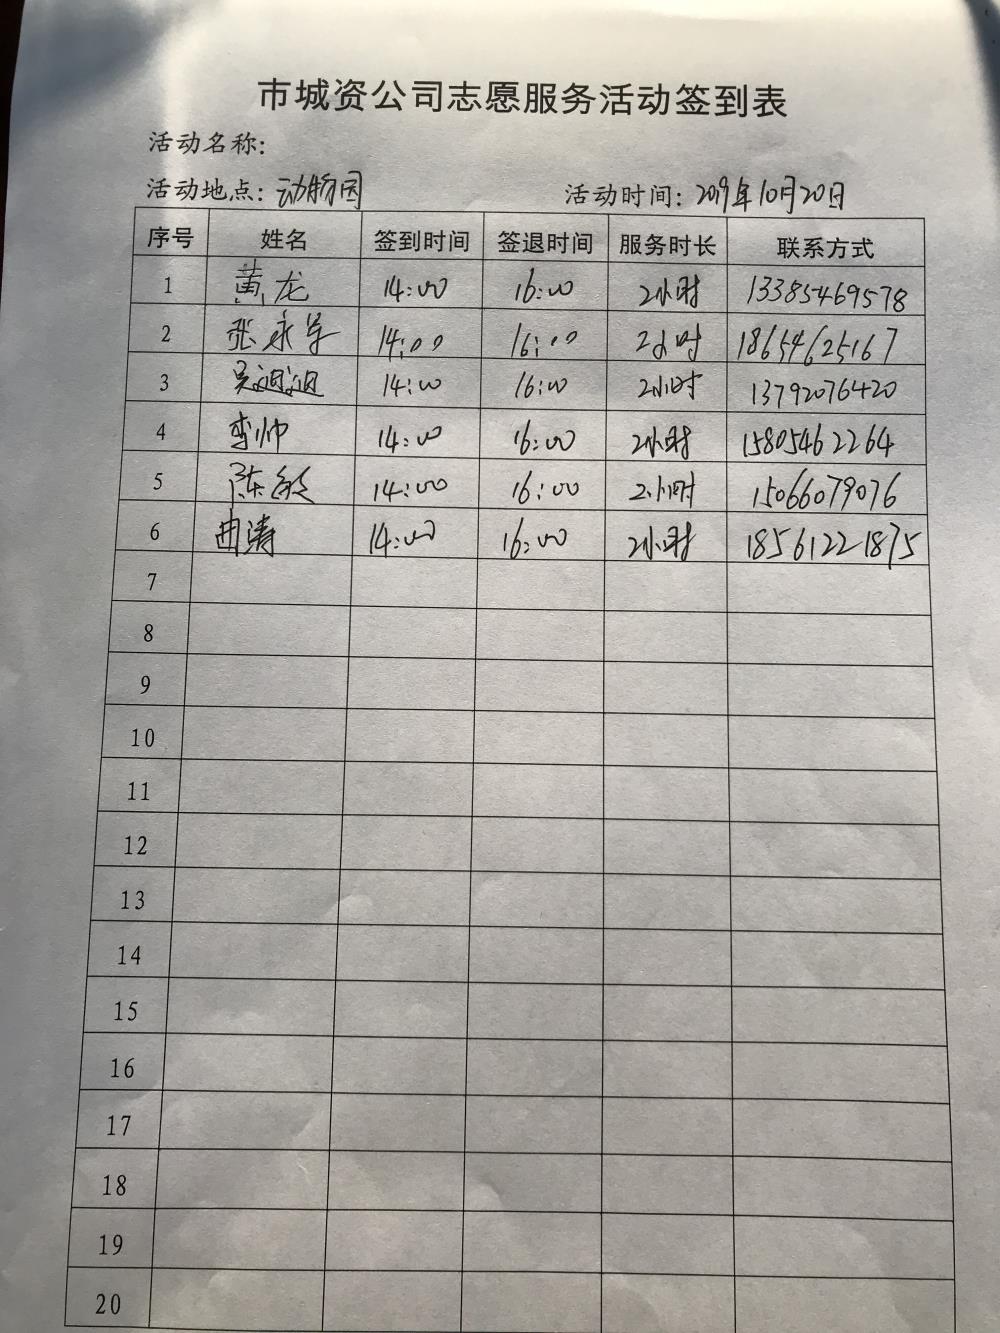 市城资公司志愿服务活动签到表
活动名称:
活动地点: 动物园 活动时间: 2019年10月20日
序号 姓名 签到时间 签退时间 服务时长 联系方式
1 黄龙 14:00 16:00 2小时 13385469578
2 张永军 14:00 16:00 2小时 18654625167
3 吴 14:00 16:00 2小时 13792076420
4 李帅 14:00 16:00 2小时 15805462264
5 陈敏 14:00 16:00 2小时 15066079076
6 曲涛 14:00 16:00 2小时 18561221875
7
8
9
10
11
12
13
14
15
16
17
18
19
20